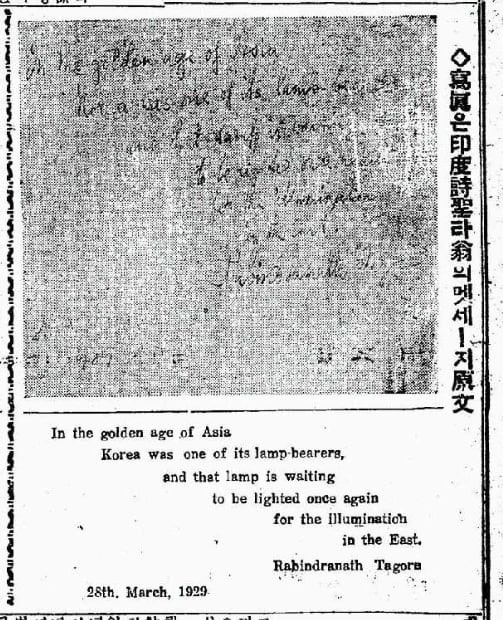 ◇寫眞은印度詩聖라翁의멧세ー지原文
In the golden age of Asia
Korea was one of its lamp
and that lamp is
to be lighted once
for the illumination
in the
Rabindranath
In the golden age of Asia
Korea was one of its lamp-bearers,
and that lamp is waiting
to be lighted once again
for the illumination
in the East.
Rabindranath Tagore
28th. March, 1929